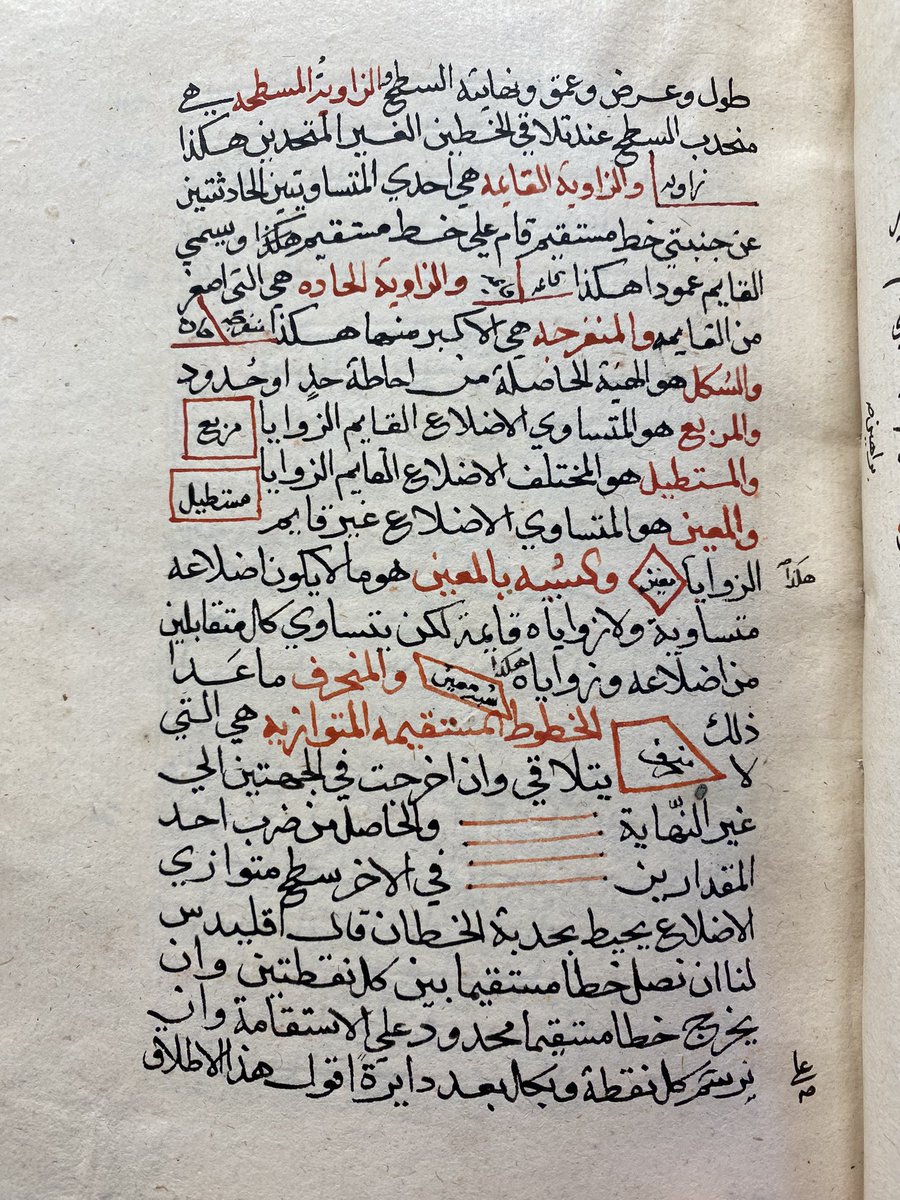 طول وعرض وعمق ونهاية السطح والزاوية المسطحه هي
منحدب السطح عند تلاقي الخطين الغير المتحدين هكذا
زاويه والزاوية القايمه هي احدي المتساويتين الحادثتين
عن جنبتي خط مستقيم قام علي خط مستقيم هكذا ويسمي
القايم عمودا هكذا قايمه قايمه والزاوية الحاده هي التي اصغر
من القايمه والمنفرجه هي الاكبر منها هكذا منفرجه حاده
والشكل هو الهيئة الحاصلة من احاطة حد او حدود
والمربع هو المتساوي الاضلاع القايم الزوايا مربع
والمستطيل هو المختلف الاضلاع القايم الزوايا مستطيل
والمعين هو المتساوي الاضلاع غير قايم
الزوايا معين والشبيه بالمعين هو ما لا يكون اضلاعه
هكذا
متساوية ولا زواياه قايمة لكن يتساوي كل متقابلين
من اضلاعه وزواياه هكذا شبه معين والمنحرف ما عدا
ذلك منحرف الخطوط المستقيمه المتوازيه هي التي
لا يتلاقي وان اخرجت في الجهتين الي
غير النهاية والحاصل من ضرب احد
المقدارين في الاخر سطح متوازي
الاضلاع يحيط بحدبة الخطان قال اقليدس
لنا ان نصل خطا مستقيما بين كل نقطتين وان
يخرج خطا مستقيما محدود علي الاستقامة وان
نرسم كل نقطة وبكل بعد دايرة اقول هذا الاطلاق